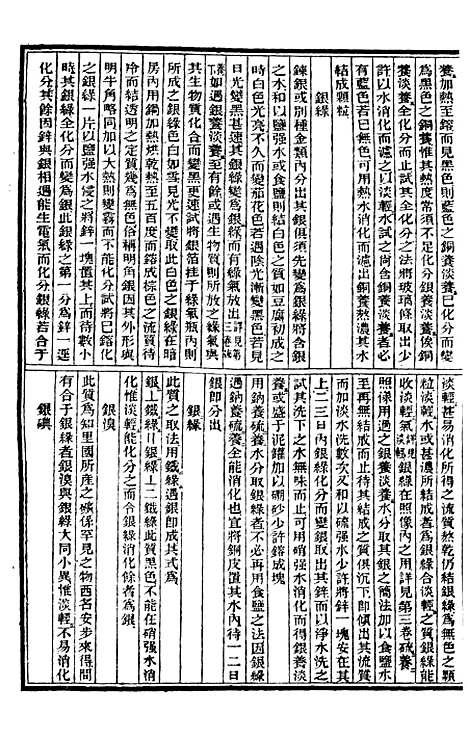 養加熱至鎔而見黑色則藍色之銅養淡養已化分而變
爲黑色之銅養惟其熱度常須不足化分銀養淡養俟銅
養淡養全化分而止試其化分之法將玻璃條取出少
許以水消化而以淡輕水試之尚含銅養淡養者必
有藍色若已無色可用熱水消化而濾出銅養熬濃其水
結成顆粒
銀綠
鍊銀或別種金類內分出其銀俱須先變爲銀綠將含銀
之水和以鹽强水或食鹽則結白色之質如豆腐初成之
時白色光亮不久而變茄花色若遇陰光漸變黑色若見
日光變黑甚速其銀綠變爲銀而有綠氣放出詳見第三卷
養若銀綠含銀養淡養至有餘或遇生物質則所放之綠氣與
其生物質化合而變黑更速將銀箔挂于綠氣瓶內則
所成之銀綠色白如雪見光不變取此白色之銀綠在暗
房內用鐲加熱烘乾熱至五百度而鎔成棕色之流質待
冷而結透明之定質幾爲無色俗稱明角銀因其外形與
明牛角略同加以大熱則變霧而不能化分試將已鎔化
之銀綠一片以鹽强水浸之將鋅一塊置其上而待數小
時其銀綠全化分而變爲銀此銀綠之第一分爲鋅一逕
化分其餘因鋅與銀相遇能生電氣而化分銀綠若合于
淡輕養甚易消化所得之流質待其化散則成無色之顆
粒淡輕水或甚濃所結成者爲銀綠合淡輕之質銀綠能
收淡輕氣詳見淡輕銀綠在照像內之用詳見第三卷硫養
照像用過之銀養淡養水分取其銀之簡法加以食鹽水
至再無結成而止待其結成之質俱沉下卽傾出其流質
而加淡水洗數次又和以硫强水少許將鋅一塊安在其
上二三日內銀綠化分而變銀取出其鋅而以淨水洗之
試其洗下之水無味而止可用硝强水消化而得銀養淡
養或盛于泥罐加以硼砂少許鎔成塊
用鈉養硫養水分取銀綠者不必再用食鹽之法因銀綠
遇鈉養硫養全能消化也宜將銅皮置其水內待一二日
銀卽分出
銀綠
此質之取法用鐵綠遇銀卽成其式爲
銀上鐵綠〣銀綠⊥二鐵綠此質黑色不能在硝强水消
化惟淡輕能化分之而令銀綠消化餘者爲銀
銀溴
此質爲知里國所產之礦係罕見之物西名安步來得間
有合于銀綠者銀溴與銀綠大同小異惟淡輕不易消化
銀碘